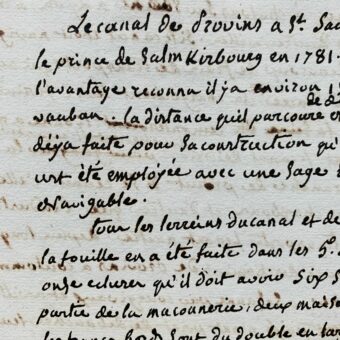 Le canal de Provins a St. Sa
le prince de Salm Kirbourg en 1781.
l'avantage reconnu il ja environ 1
vauban. la distance qu'il parcoure
de d
déja faite pour sa contruction qu'
urt été employée avec une sage
et Navigable.
tous les terreins du canal et de
la fouille en a été faite dans les 5.
onse ecluses qu'il doit avoir six s
partie de la maconnerie, deux mais
bords sont du double en lar